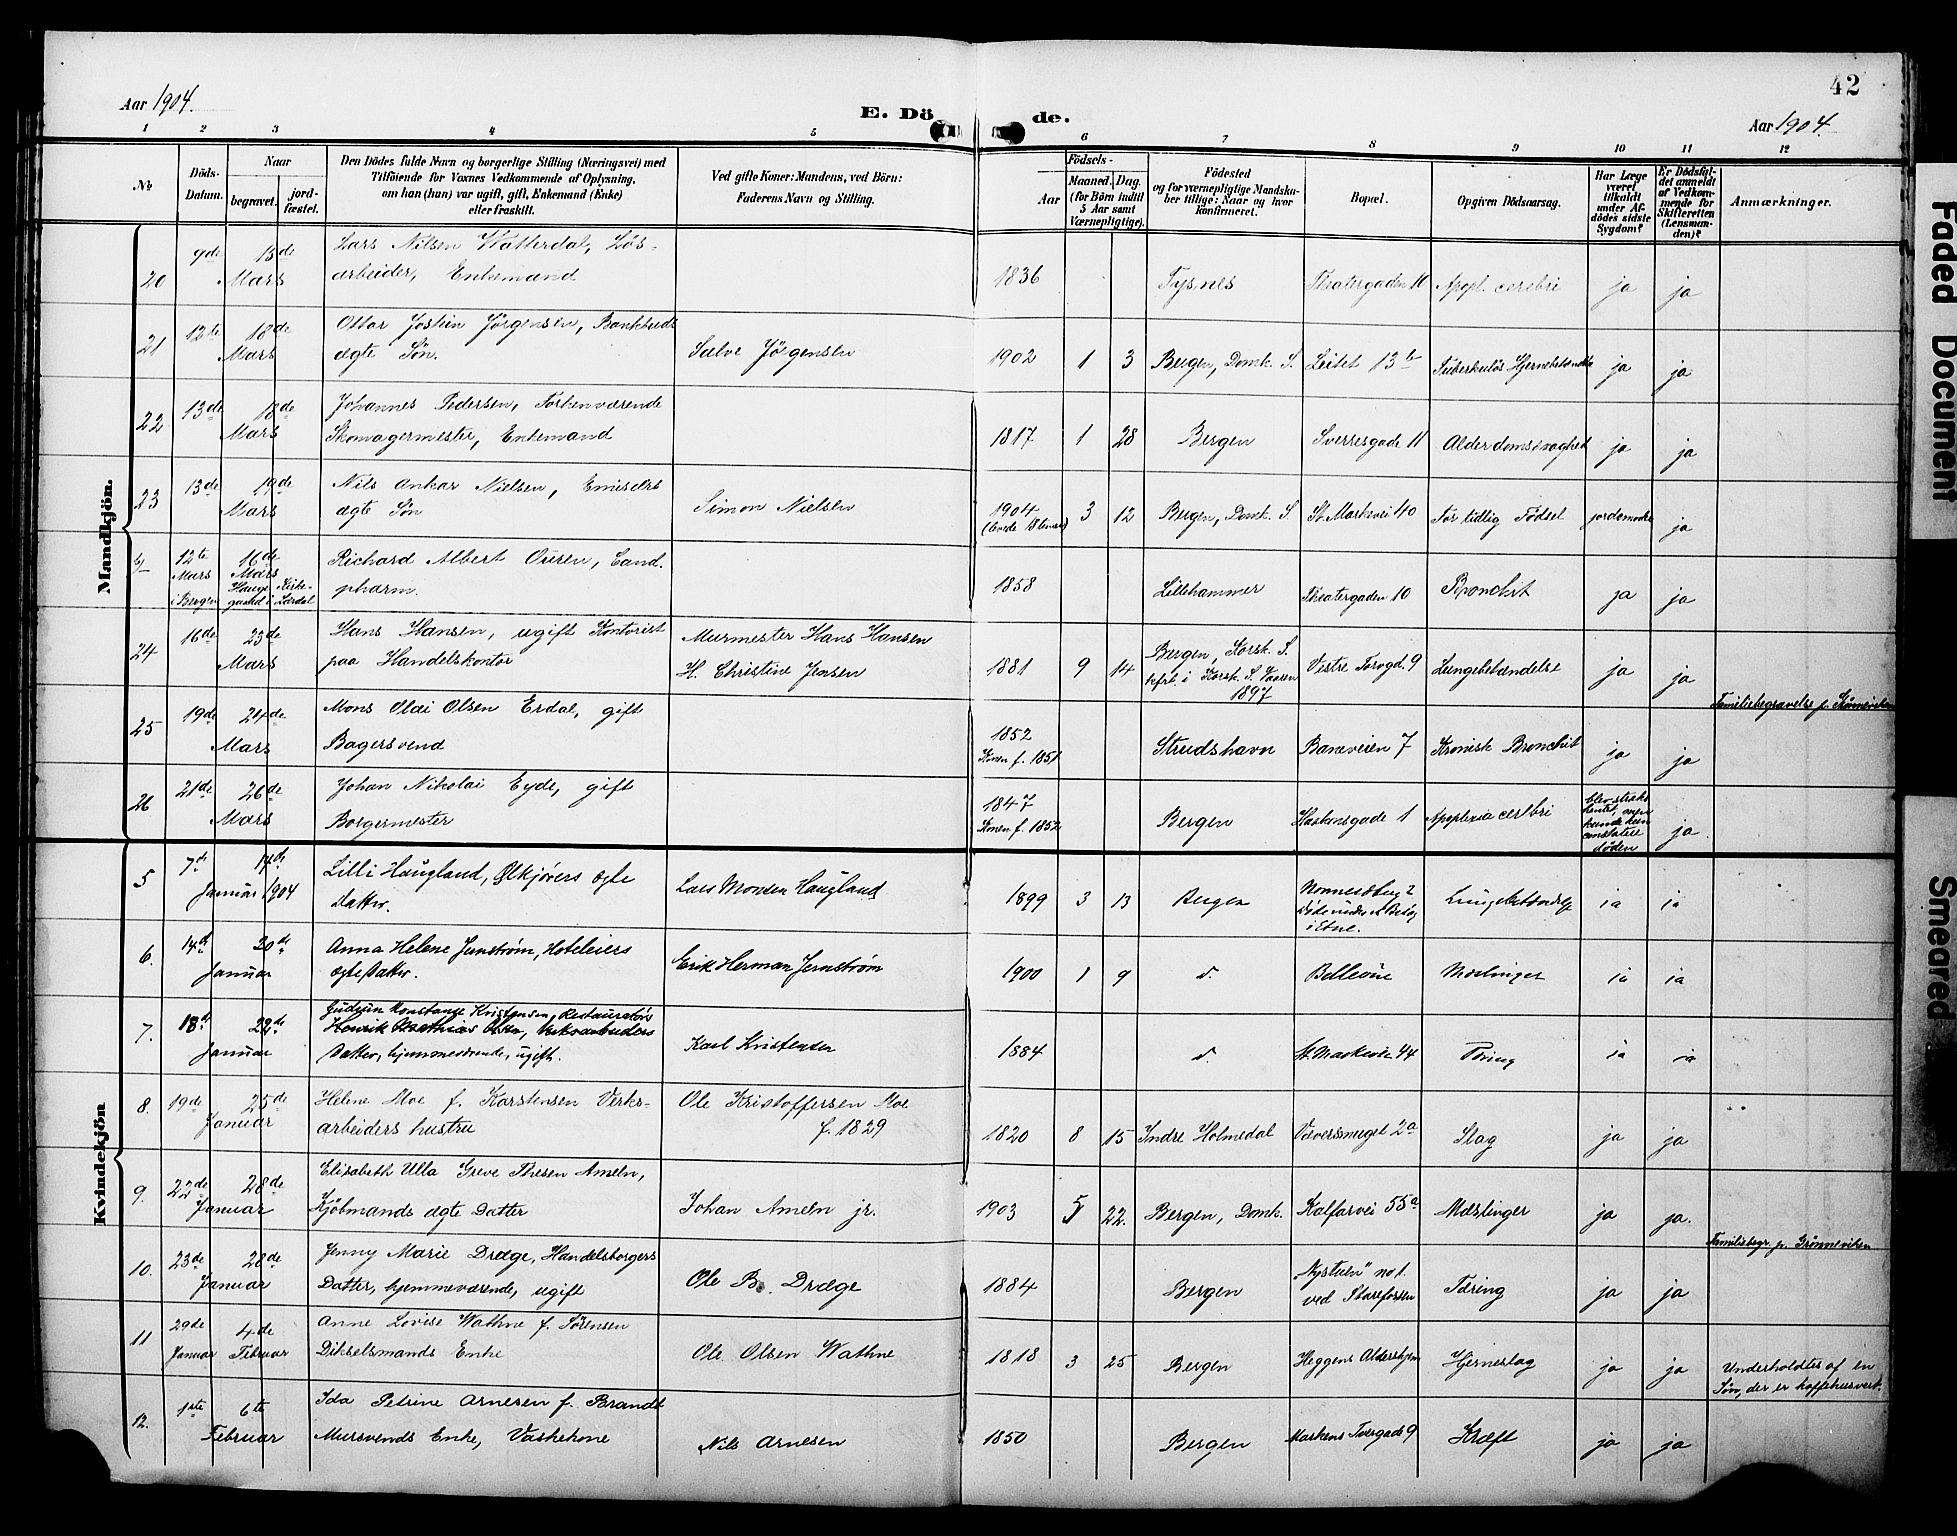 Aar 1904.
E. Döde.
42
Aar 1904.
1 2 3 4 5 6 7 8 9 10 11 12
No
Döds-Datum.
Naar
begravet.
jord-fæstet.
Den Dödes fulde Navn og borgerlige Stilling (Næringsvei) med
Tilföiende for Voxnes Vedkommende af Oplysning,
om han (hun) var ugift, gift, Enkemand (Enke)
eller fraskilt.
Ved gifte Koner: Mandens, ved Börn:
Faderens Navn og Stilling.
Födsels-
Aar
Maaned. Dag.
(for Börn indtil
5 Aar samt
Værnepligtige).
Födested
og for værnepligtige Mandsku-
ber tillige: Naar og hvor
konfirmeret.
Bopæl.
Opgiven Dödsaarsag.
Har Læge
været
tilkaldt
under Af-
dödes sidste
Sygdom?
Er Dödsfal-
det anmeldt
af Vedkom-
mende for
Skifteretten
(Lensman-
den)?
Anmærkninger.
Mandkjön.
20 9de 15de Mars
Lars Nilsen Watterdal, Løs-
arbeider, Enkemand
1836 Tysnes Theatergaden 10 Apopl. cerebri ja ja
21 12te 18de Mars
Ottar Jostein Jørgensen, Bankbuds
ægte Søn.
Salve Jørgensen
1902 1 3 Bergen, Domk. S. Leitet 13b Tuberkuløs Hjernebetændelse ja ja
22 13de 18de Mars
Johannes Pedersen, Forhenværende
Skomagermester, Enkemand
1817 1 28 Bergen Sverresgade 11 Alderdomssvaghed ja ja
23 13de 19de Mars
Nils Ankar Nielsen,
ægte Søn
Simon Nielsen
1904 3 12 Bergen, Domk. S. St. Markevei 40 For tidlig Födsel jordemoder ja
12te Mars i Bergen 16de Mars Hauge Kirke-
gaard i Lærdal
Richard Albert Ouren, Cand.
pharm.
1858 Lillehammer Theatergaden 10 Bronchit ja ja
24 16de 23de Mars
Hans Hansen, ugift Kontorist
paa Handelskontor
Murmester Hans Hansen
H. Christine Jensen
1881 9 14 Bergen, Korsk. S.
kfrt. i Korsk. S. Vaaren
1897
Vestre Torvgd. 9 Lungebetændelse ja ja
25 19de 24de Mars
Mons Olai Olsen Erdal, gift
Bagersvend
1852
Konen f. 1851
Strudshavn Baneveien 7 Kronisk Bronchit ja ja
Familiebegravelse p.
26 21de 26de Mars
Johan Nikolai Eyde, gift
Borgermester
1847
Konen f. 1852
Bergen Haakonsgade 1 Apoplexia cerebri
blev straks
hentet, men
kunde kun
constatere
døden
ja
Kvindekjön
5 7de 14de
Januar 1904
Lilli Haugland, Ølkjørers ægte
Datter.
Lars Monsen Haugland
1899 3 13 Bergen Nonneseterg 2
Døde under et Besøg
i Etne.
Lungebetændelse ja ja
6. 14de 20de Januar
Anna Helene Jernstrøm, Hoteleiers
ægte Datter.
Erik Herman Jernstrøm
1900 1 9 d. Bellevue Meslinger ja ja
7. 18de 22de Januar
Gudrun Konstanse Kristensen, Restauratørs
Datter, hjemmeværende, ugift.
Karl Kristensen
1884 d. St. Markevei 44 Tæring ja ja
8. 19de 25de Januar
Helene Moe f. Karstensen Verks-
arbeiders hustru
Ole Kristoffersen Moe
f. 1829
1820 8 15 Indre Holmedal Væversmuget 2a Slag ja ja
9. 22de 28de Januar
Elisabeth Ulla Greve Thesen Ameln,
Kjöbmands ægte Datter
Johan Ameln jr.
1903 5 22. Bergen, Domk. Kalfarvei 55a Mæslinger ja ja.
10. 23de 28de Januar
Jenny Marie Dræge, Handelsborgers
Datter, hjemmeværende, ugift
Ole B. Dræge
1884 Bergen „Nystuen" no 1.
ved Starefossen
Tæring ja ja
Familiebegr. p. Grönneviken
11 29de Januar 4de Februar
Anne Lovise Wathne f. Sørensen
Dikselsmands Enke
Ole Olsen Wathne
1818 3 25 Bergen Heggens Aldershjem Hjerneslag ja ja
Underholdtes af en
Søn, der er kaffehusvert.
12. 1ste 6te Februar
Ida Petrine Arnesen f. Brandt
Mursvends Enke, Vaskekone
Nils Arnesen
1850 Bergen Markens Tvergade 9 Kræft ja ja
Faded Document
Smeared